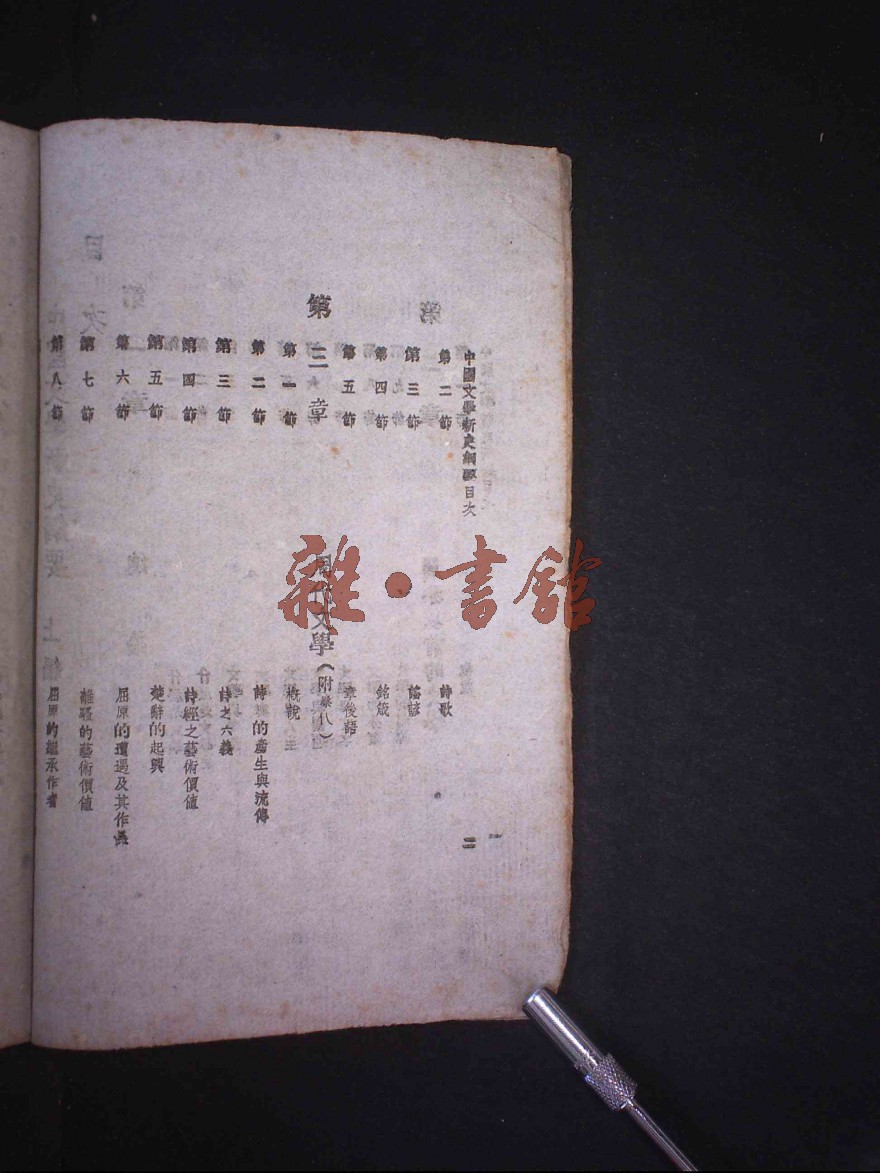 中國文學新史綱要目次
二
第二節 詩歌
第三節 謠諺
第四節 銘箴
第五節 章後語
第三章 周代文學(附秦代)
第一節 概說
第二節 詩經的產生與流傳
第三節 詩之六義
第四節 詩經之藝術價值
第五節 楚辭的起興
第六節 屈原的遭遇及其作品
第七節 離騷的藝術價值
第八節 屈原的繼承作者
雜·書館